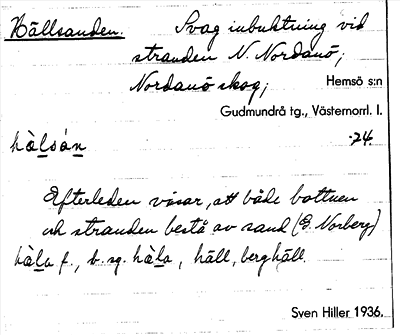 Hällsanden. Svag inbuktning vid
stranden N. Nordanö;
Nordanö skog; Hemsö s:n
Gudmundrå tg., Västernorrl. l.
hàlsán -24.
Efterleden visar, att både bottnen
och stranden bestå av sand (E. Norberg)
hàla f., b. sg. hàla, häll, berghäll.
Sven Hiller 1936.